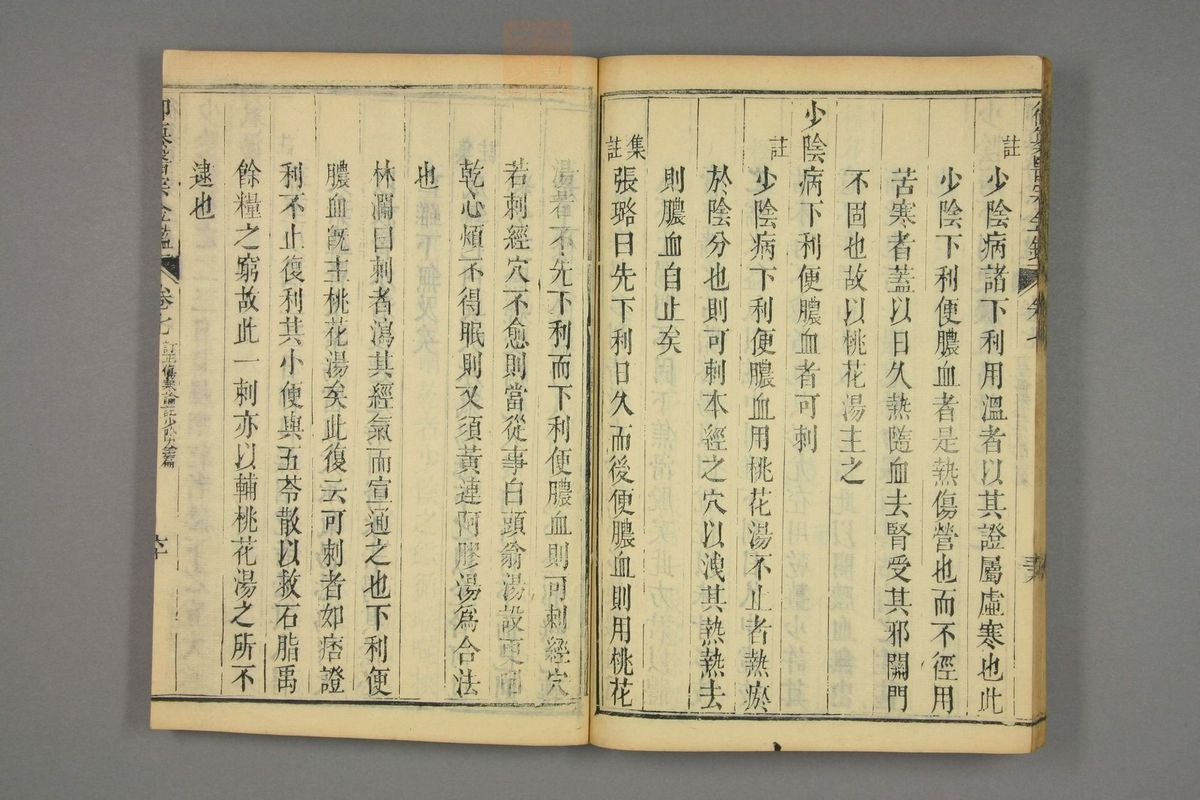 註
少陰病諸下利用溫者以其證屬虛寒也此
少陰下利便膿血者是熱傷營也而不徑用
苦寒者蓋以日久熱隨血去腎受其邪關門
不固也故以桃花湯主之
少陰病下利便膿血者可刺
註
少陰病下利便膿血用桃花湯不止者熱瘀
於陰分也則可刺本經之穴以洩其熱熱去
則膿血自止矣
集註
張璐曰先下利日久而後便膿血則用桃花
湯若不先下利而下利便膿血則可刺經穴
若刺經穴不愈則當從事白頭翁湯設更咽
乾心煩不得眠則又須黃連阿膠湯爲合法
也
林瀾曰刺者瀉其經氣而宣通之也下利便
膿血旣主桃花湯矣此復云可刺者如痞證
利不止復利其小便與五苓散以救石脂禹
餘糧之窮故此一刺亦以輔桃花湯之所不
逮也
卷七